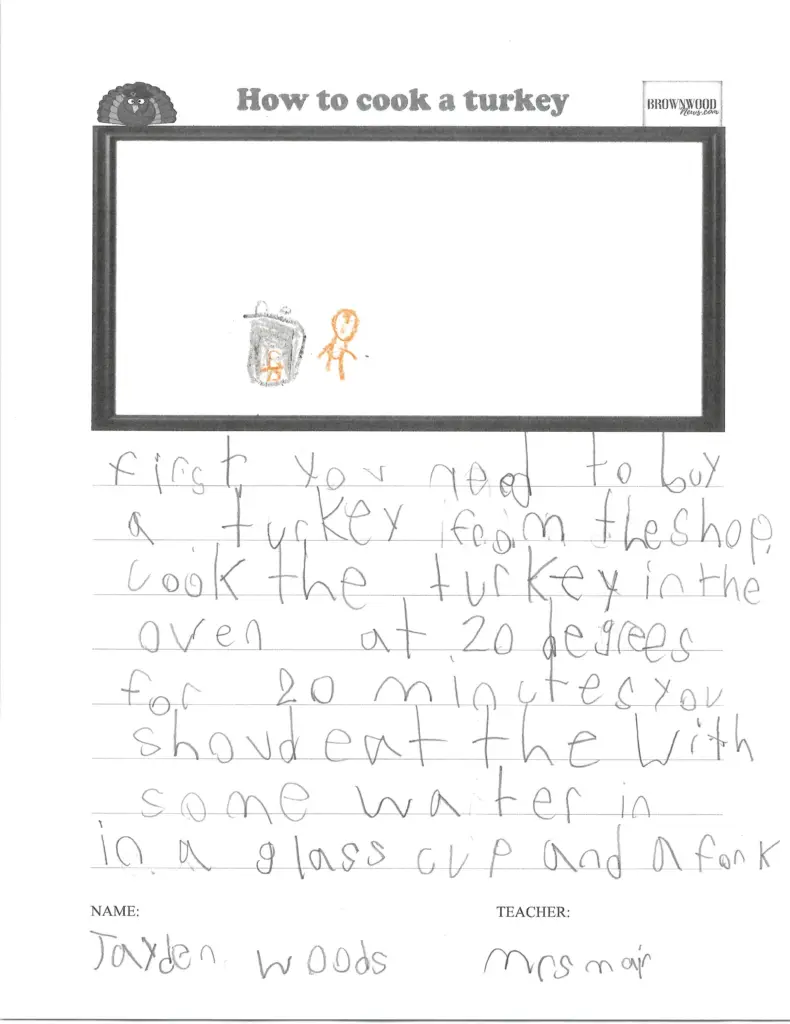 How to cook a turkey
BROWNWOOD
News.com
first you need to buy
a turkey from the shop.
cook the turkey in the
oven at 20 degrees
for 20 minutes you
shoud eat the with
some water in
in a glass cup and a fork
NAME:
TEACHER:
Jayden woods
mrs mair